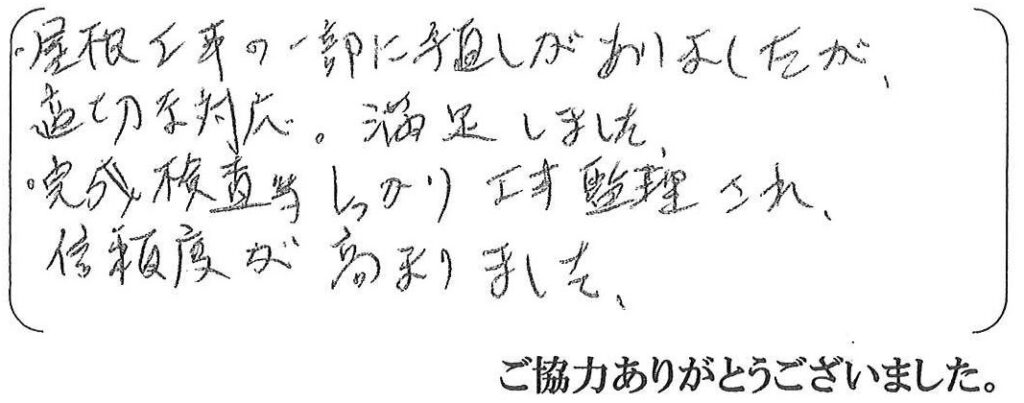 ・屋根工事の一部に手直しがありましたが、
適切な対応。満足しました。
・完成検査等しっかり工事監理され、
信頼度が高まりました。
ご協力ありがとうございました。